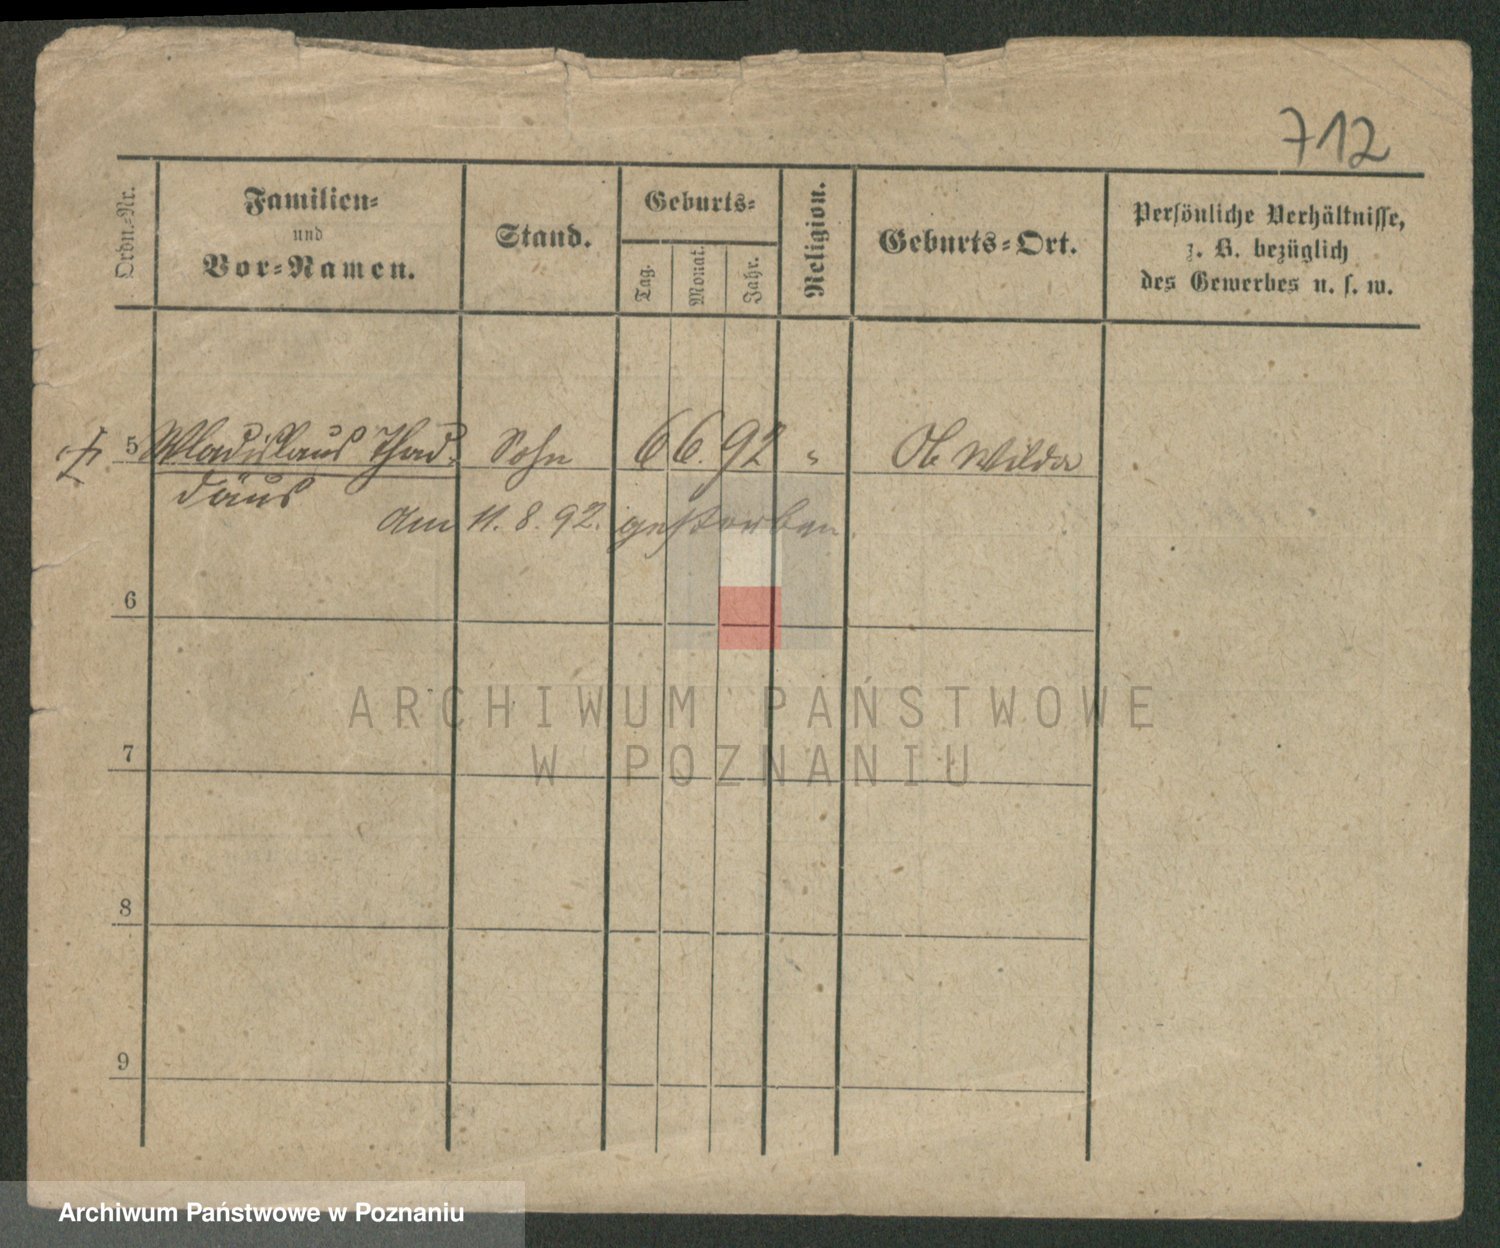 712
Ordn.-Nr.
Familien-
und
Vor-Namen.
Stand.
Geburts-
Tag.
Monat.
Jahr.
Religion.
Geburts-Ort.
Persönliche Verhältnisse,
z. B. bezüglich
des Gewerbes u. s. w.
5 Wladislaus Thad- Sohn 6 6. 92 " Ob Wilda
däus
Am 11. 8. 92. gestorben.
6
7
8
9
ARCHIWUM PAŃSTWOWE
W POZNANIU
Archiwum Państwowe w Poznaniu